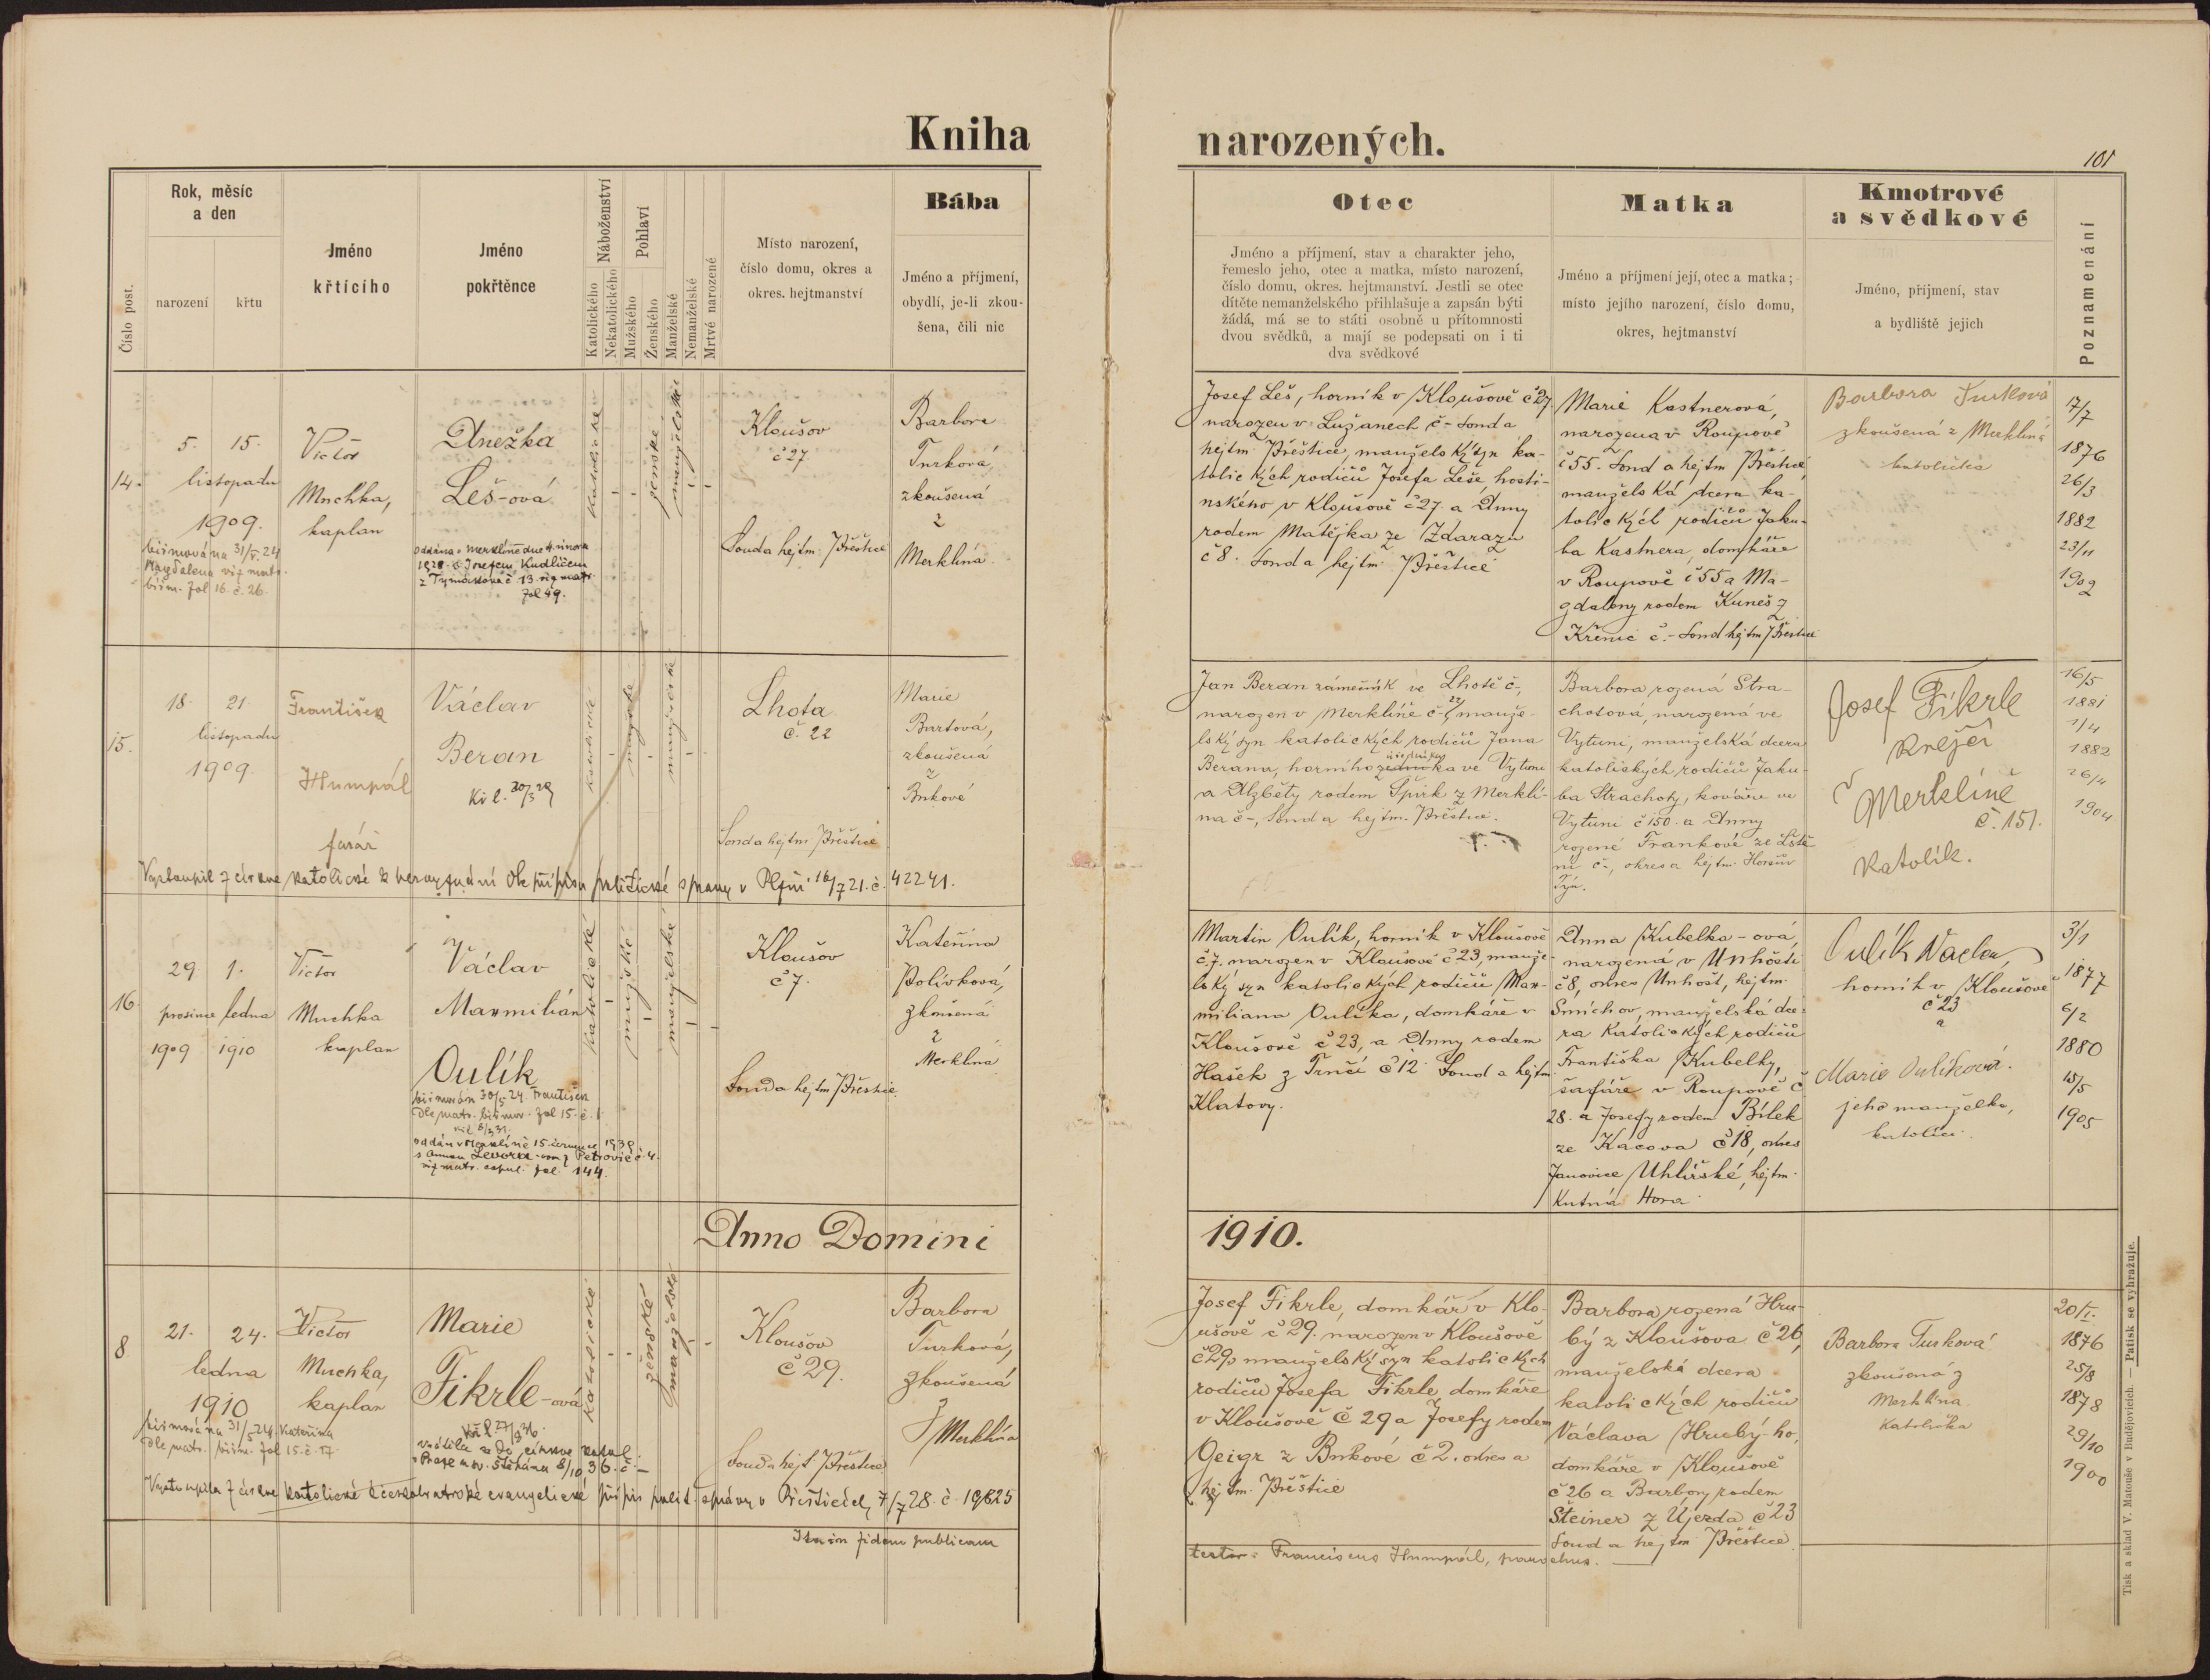 Kniha narozených.
101
Číslo post.
Rok, měsíc
a den
narození
křtu
Jméno
křtícího
Jméno
pokřtěnce
Náboženství
Katolického
Nekatolického
Pohlaví
Mužského
Ženského
Manželské
Nemanželské
Mrtvé narozené
Místo narození,
číslo domu, okres a
okres. hejtmanství
Bába
Jméno a příjmení,
obydlí, je-li zkou-
šena, čili nic
Otec
Jméno a příjmení, stav a charakter jeho,
řemeslo jeho, otec a matka, místo narození,
číslo domu, okres. hejtmanství. Jestli se otec
dítěte nemanželského přihlašuje a zapsán býti
žádá, má se to státi osobně u přítomnosti
dvou svědků, a mají se podepsati on i ti
dva svědkové
Matka
Jméno a příjmení její, otec a matka;
místo jejího narození, číslo domu,
okres, hejtmanství
Kmotrové
a svědkové
Jméno, příjmení, stav
a bydliště jejich
Poznamenání
14.
5. 15.
listopadu
1909.
biřmována 31/V. 24
Magdalena viz matr.
biřm. fol 16. č. 26.
Victor
Muchka,
kaplan
Anežka
Leš-ová
oddána v Merklíně dne 4. února
1928 s Josefem Kudličem
č 13 viz matr.
fol. 49.
katolické
ženské
manželské
Kloušov
č 27
Soud a hejtm: Přeštice
Barbora
Turková,
zkoušená
z
Merklína.
Josef Leš, horník v Kloušově č 27.
narozen v Lužanech č - soud a
hejtm. Přeštice, manželský syn ka-
tolických rodičů Josefa Leše, hosti-
nského v Kloušově č 27. a Anny
rodem Matějka ze Zdarazu
č 8. soud a hejtm. Přeštice
Marie Kastnerová,
narozena v Roupově
č 55. soud a hejtm Přeštice
manželská dcera ka-
tolických rodičů Jaku-
ba Kastnera, domkáře
v Roupově č 55 a Ma-
gdaleny rodem Kuneš z
Křenic č. - soud hejtm Přeštice
Barbora Turková
zkoušená z Merklína
katolička
17/7
1876
26/3
1882
23/11
1902
15.
18. 21.
listopadu
1909.
František
Humpál
farář
Václav
Beran
Kř l. 20/3 29
katolické
mužské
manželské
Lhota
č. 22
Soud a hejtm Přeštice
Marie
Bartová,
zkoušená
z
Brkové
Vystoupil z církve katolické k bezvyznání dle přípisu politické správy v Plzni 16/7 21. č. 42241.
Jan Beran zámečník ve Lhotě č -, 22
narozen v Merklíně č -, manže-
lský syn katolických rodičů Jana
Berana, horního ve Vytuni
a Alžběty rodem Špirk z Merklí-
na č -, soud a hejtm. Přeštice.
Barbora rozená Stra-
chotová, narozená ve
Vytuni, manželská dcera
katolických rodičů Jaku-
ba Strachoty, kováře ve
Vytuni č 150. a Anny
rozené Frankové ze Lště-
ní č -, okres a hejtm. Horšův
Týn.
Josef Fikrle
krejčí
v Merklíně
č. 151.
katolík.
16/5
1881
1/4
1882
26/4
1904
16.
29 1.
prosince ledna
1909 1910
Victor
Muchka
kaplan
Václav
Maxmilián
Oulík
biřmován 30/5 24. František
dle matr. biřmov. fol 15. č. 1.
oddán v Merklíně 15. července 1939
s Annou Levora-ou z Petrovic č. 4.
viz matr. copul. fol. 144.
katolické
mužské
manželské
Kloušov
č 7.
Soud a hejtm Přeštice
Kateřina
Polívková,
zkoušená
z
Merklína
Martin Oulík, horník v Kloušově
č. 7. narozen v Kloušově č 23, manže-
lský syn katolických rodičů Max-
miliana Oulíka, domkáře v
Kloušově č 23, a Anny rodem
Hašek z Trnčí č 12 Soud a hejtm.
Klatovy.
Anna Kubelka-ová,
narozená v Unhošti
č 8, okres Unhošť, hejtm.
Smíchov, manželská dce-
ra katolických rodičů
Františka Kubelky,
šafáře v Roupově č
28. a Josefy rodem Bílek
ze Kacova č 18, okres
Janovice Uhlířské, hejtm.
Kutná Hora.
Oulík Václav,
horník v Kloušově
č 23
a
Marie Oulíková.
jeho manželka,
katolíci.
3/1
1877
6/2
1880
15/5
1905
Anno Domini 1910.
8
21. 24.
ledna
1910
biřmována 31/5 24. Kateřina
dle matr. biřm. fol 15. č. 17.
Victor
Muchka,
kaplan
Marie
Fikrle-ová
vrátila se do církve katol.
v Praze u sv. Štěpána 8/10 36. č. -
katolické
ženské
manželské
Kloušov
č 29.
Soud a hejt Přeštice
Barbora
Turková,
zkoušená
z
Merklína
Vystoupila z církve katolické k českobratrské evangelické přípis polit. správy v Přešticích 7/7 28. č. 19625
Josef Fikrle, domkář v Klo-
ušově č 29. narozen v Kloušově
č 29, manželský syn katolických
rodičů Josefa Fikrle, domkáře
v Kloušově č 29 a Josefy rodem
Geigr z Brkové č 2. okres a
hejtm. Přeštice
Barbora rozená Hru-
bý z Kloušova č 26,
manželská dcera
katolických rodičů
Václava Hrubý-ho,
domkáře v Kloušově
č 26 a Barbory rodem
Šteiner z Újezda č 23
soud a hejtm. Přeštice.
Barbora Turková
zkoušená z
Merklína
Katolička
20/I.
1876
25/8
1878
29/10
1900
Ita in fidem publicam
testor: Franciscus Humpál, parochus.
Tisk a sklad V. Matouše v Budějovicích. — Patisk se vyhražuje.